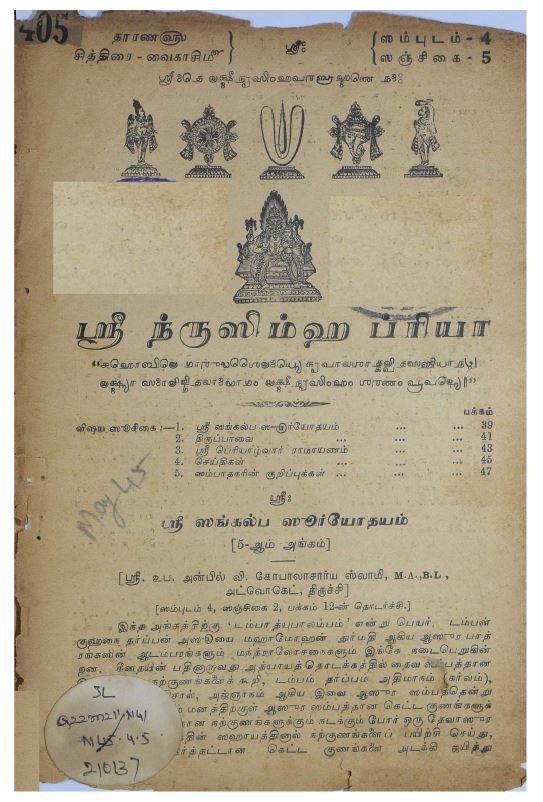 405
தாரண வரு
சித்திரை - வைகாசி மீ
ஸ்ரீ:
ஸம்புடம் - 4
ஸஞ்சிகை - 5
ஸ்ரீ ந்ருஸிம்ஹ ப்ரியா
பக்கம்
விஷய ஸூசிகை :—1. ஸ்ரீ ஸங்கல்ப ஸூர்யோதயம் ... ... 39
2. திருப்பாவை ... ... 41
3. ஸ்ரீ பெரியாழ்வார் ராமாயணம் ... ... 43
4. செய்திகள் ... ... 45
5. ஸம்பாதகரின் குறிப்புக்கள் ... ... 47
May 45
ஸ்ரீ:
ஸ்ரீ ஸங்கல்ப ஸூர்யோதயம்
[5-ஆம் அங்கம்]
[ஸ்ரீ. உப. அன்பில் வி. கோபாலாசார்ய ஸ்வாமி, M.A.,B.L.,
அட்வொகெட், திருச்சி]
[ஸம்புடம் 4, ஸஞ்சிகை 2, பக்கம் 12-ன் தொடர்ச்சி.]
இந்த அங்கத்திற்கு 'டம்பாத்யுபாலம்பம்' என்று பெயர். டம்பன்
குஹகை தர்ப்பன் அஸூயை மஹாமோஹன் துர்மதி ஆகிய ஆஸுர பாத்
ரங்களின் ஆடம்பரங்களும் மந்த்ராலோசனைகளும் இங்கே நடைபெறுகின்
றன. கீதையின் பதினாறாவது அத்யாயத் தொடக்கத்தில் தைவ ஸம்பத்தான
நற்குணங்களைக் கூறி, டம்பம் தர்ப்பம் அதிமாநம் (கர்வம்),
சொல், அஜ்ஞாநம் ஆகிய இவை ஆஸுர ஸம்பத்தென்று
மனத்திற்குள் ஆஸுர ஸம்பத்தான கெட்ட குணங்களுக்
நற்குணங்களுக்கும் நடக்கும் போர் ஒரு தேவாஸுர
ஸஹாயத்தினால் நற்குணங்களைப் பயிற்சி செய்து,
கெட்ட குணங்களை அடக்கி ஜயித்து
JL
Q22:7)211,N41
N45.4.5
210137